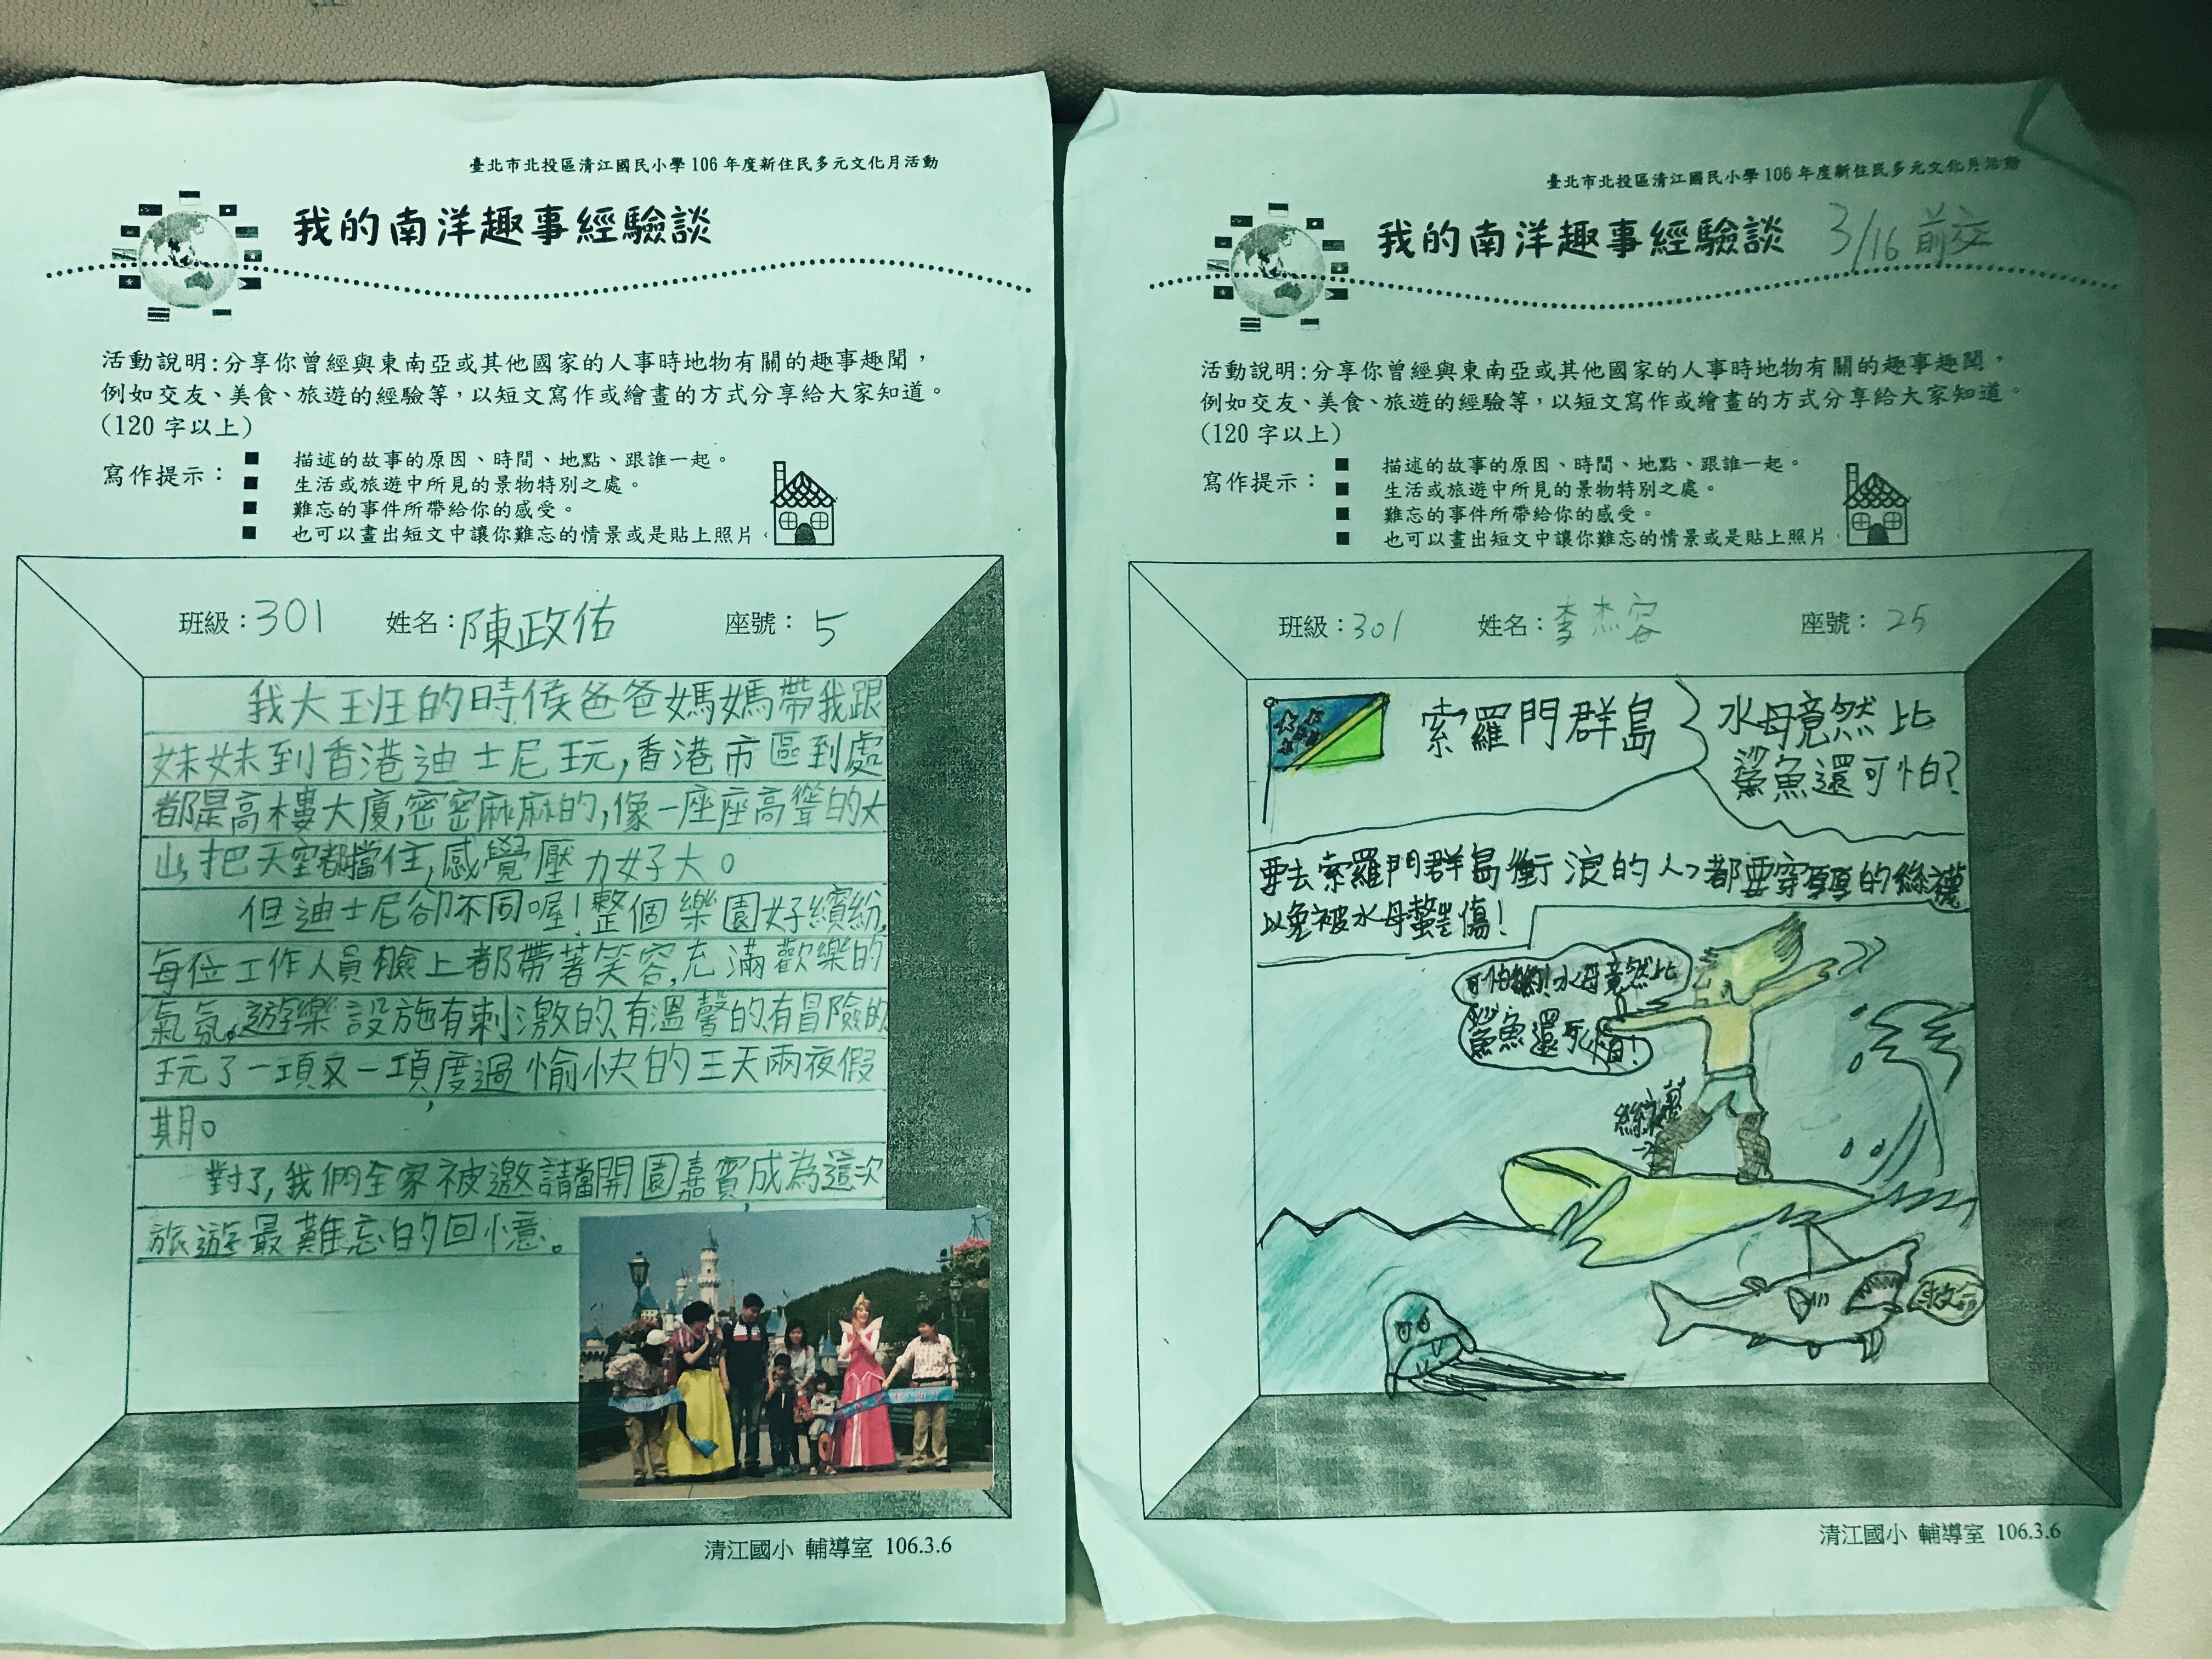 臺北市北投區清江國民小學106年度新住民多元文化月活動
我的南洋趣事經驗談
活動說明:分享你曾經與東南亞或其他國家的人事時地物有關的趣事趣聞,
例如交友、美食、旅遊的經驗等,以短文寫作或繪畫的方式分享給大家知道。
(120字以上)
寫作提示:
■ 描述的故事的原因、時間、地點、跟誰一起。
■ 生活或旅遊中所見的景物特別之處。
■ 難忘的事件所帶給你的感受。
■ 也可以畫出短文中讓你難忘的情景或是貼上照片。
班級:301 姓名:陳政佑 座號:5
我大班的時侯爸爸媽媽帶我跟
妹妹到香港迪士尼玩,香港市區到處
都是高樓大廈,密密麻麻的,像一座座高聳的大
山,把天空都擋住,感覺壓力好大。
但迪士尼卻不同喔!整個樂園好繽紛,
每位工作人員臉上都帶著笑容,充滿歡樂的
氣氛。遊樂設施有刺激的、有溫馨的、有冒險的
玩了一項又一項,度過愉快的三天兩夜假
期。
對了,我們全家被邀請當開園嘉賓,成為這次
旅遊最難忘的回憶。
清江國小 輔導室 106.3.6
臺北市北投區清江國民小學106年度新住民多元文化月活動
我的南洋趣事經驗談 3/16前交
活動說明:分享你曾經與東南亞或其他國家的人事時地物有關的趣事趣聞,
例如交友、美食、旅遊的經驗等,以短文寫作或繪畫的方式分享給大家知道。
(120字以上)
寫作提示:
■ 描述的故事的原因、時間、地點、跟誰一起。
■ 生活或旅遊中所見的景物特別之處。
■ 難忘的事件所帶給你的感受。
■ 也可以畫出短文中讓你難忘的情景或是貼上照片。
班級:301 姓名:李杰容 座號:25
索羅門群島
水母竟然比
鯊魚還可怕?
要去索羅門群島衝浪的人,都要穿的絲襪
以免被水母螫傷!
可怕!水母竟然比
鯊魚還可怕!
絲襪
救命
清江國小 輔導室 106.3.6